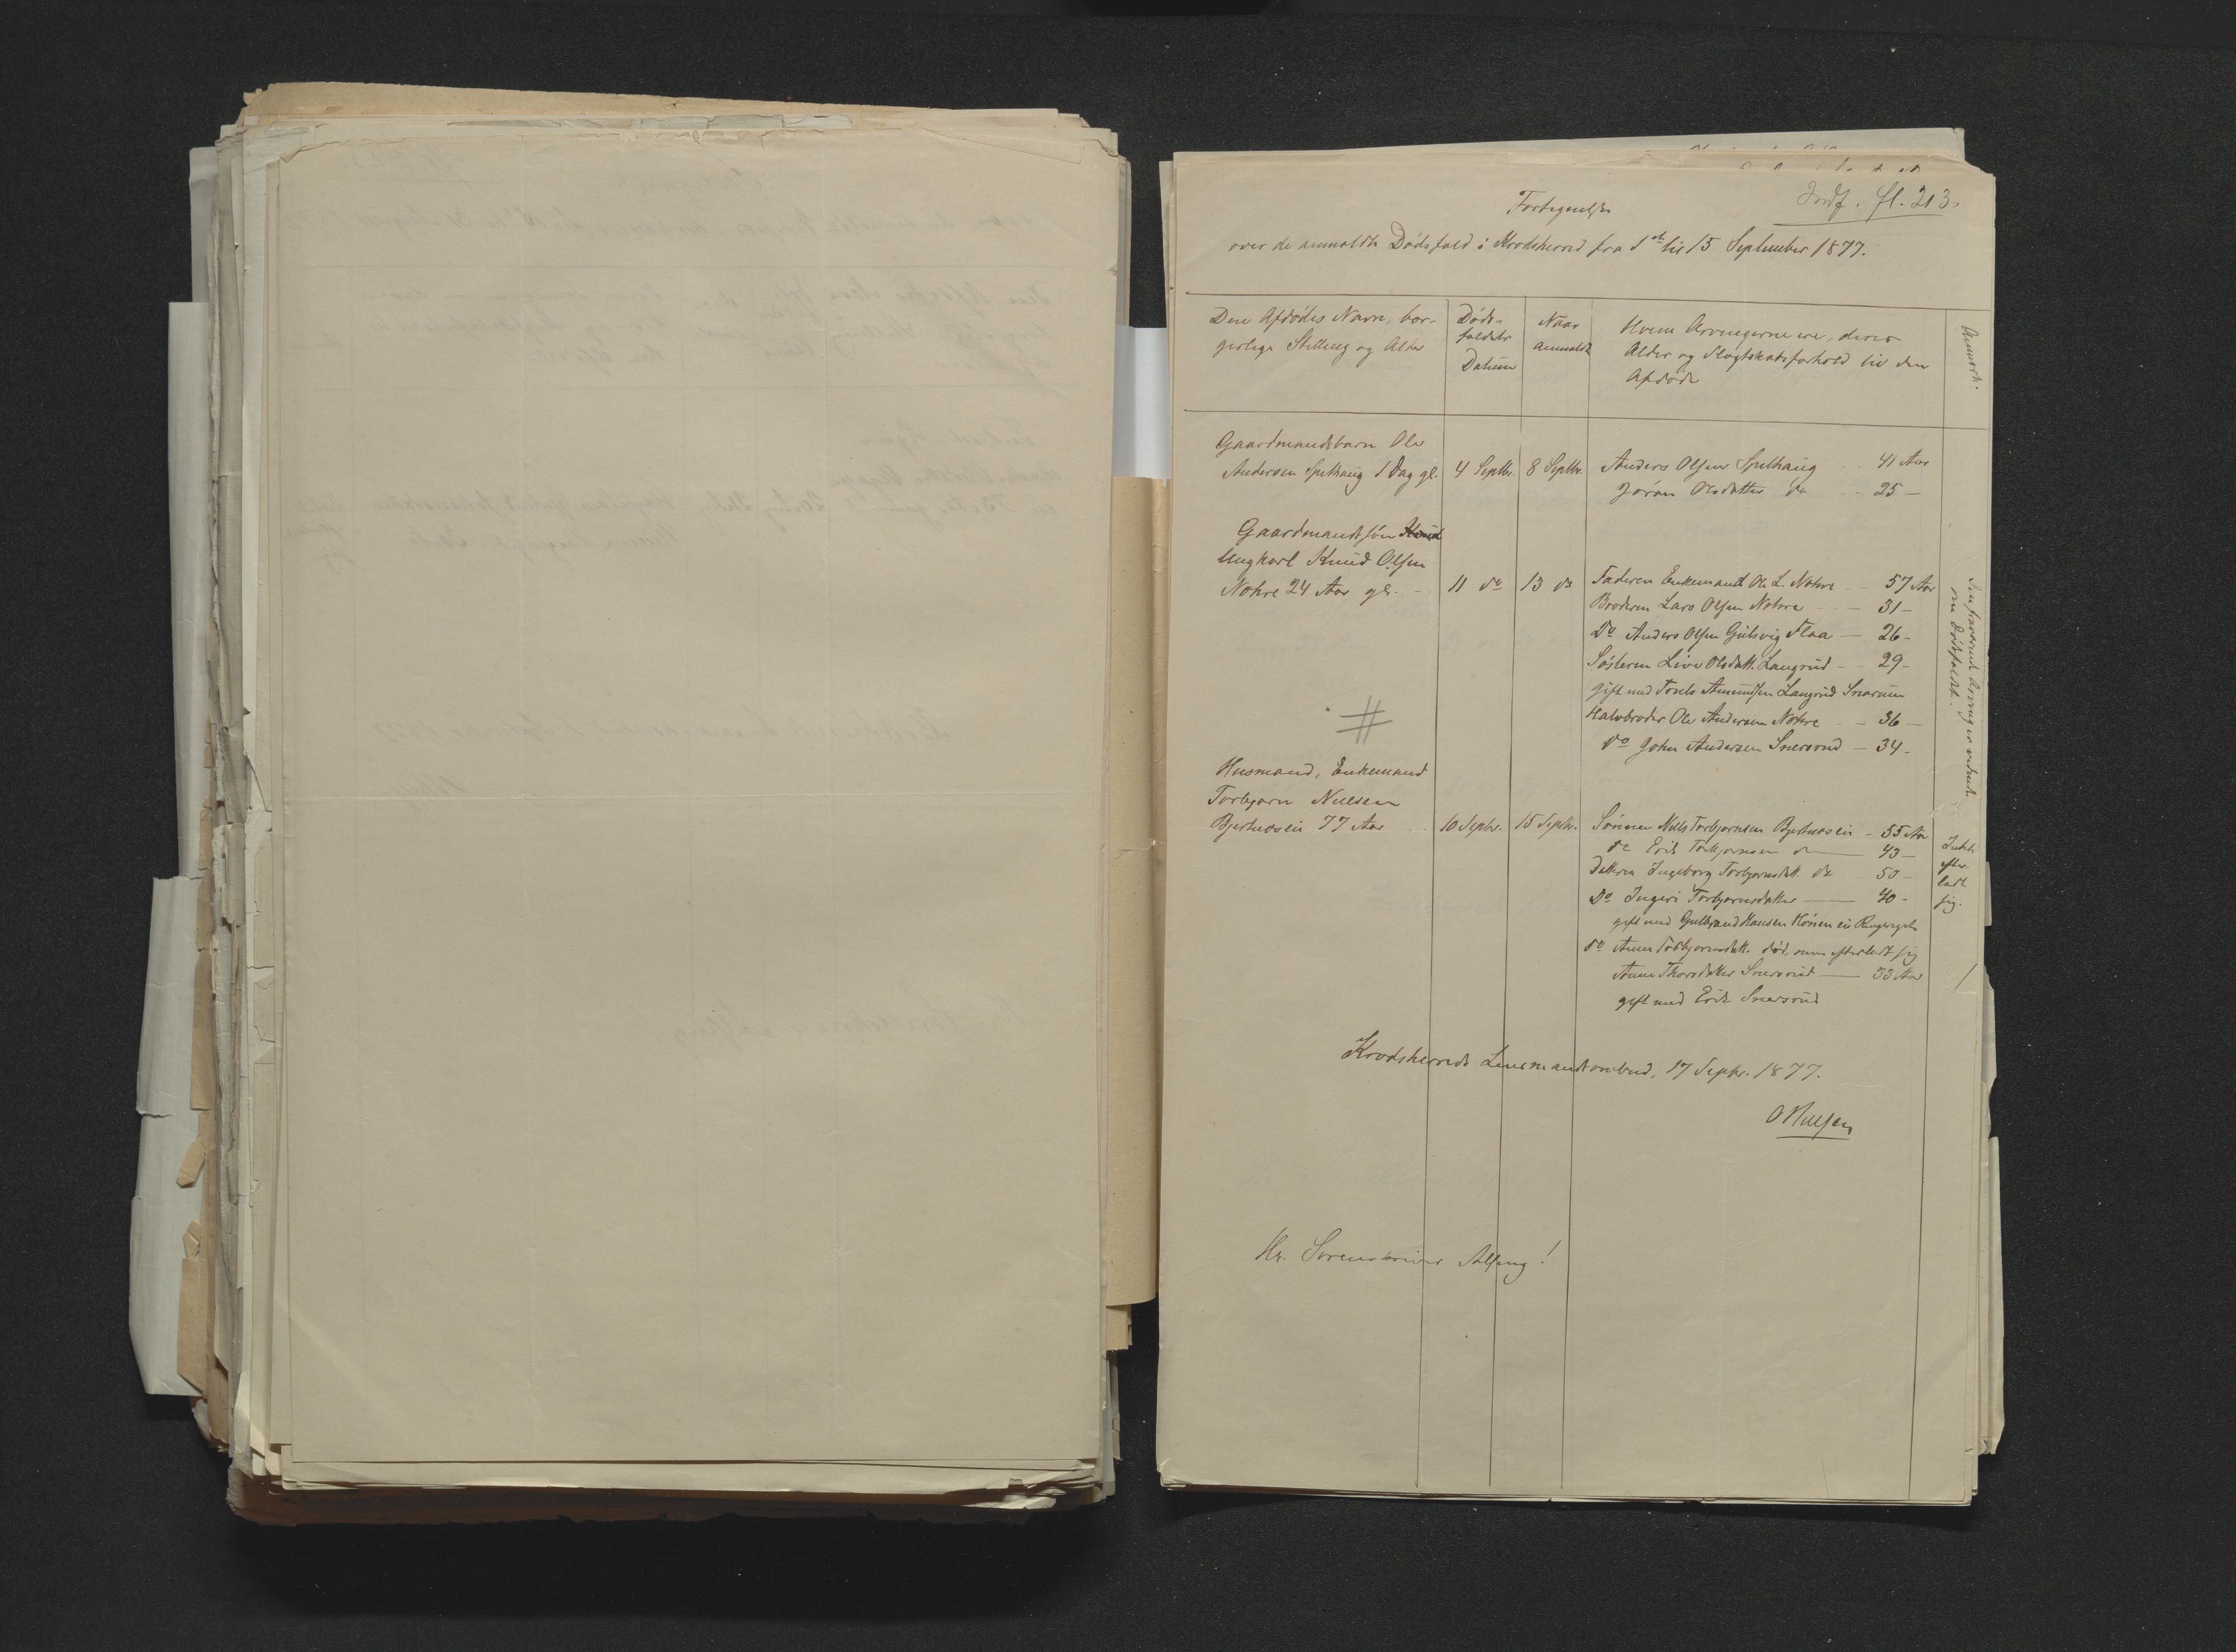 Indf. fl. 213.
Fortegnelse
over de anmeldte Dødsfald i Krødsherred fra 1st til 15 September 1877.
Den Afdødes Navn, bor-
gerlige Stilling og Alder
Døds-
faldets
Datum
Naar
anmeldt
Hvem Arvingerne ere, deres
Alder og Slægtskabsforhold til den
Afdøde
Anmærk.
Gaardmandsbarn Ole
Andersen Spelhaug 1 Dag gl. 4 Septbr. 8 Septbr. Anders Olsen Spelhaug 41 Aar
Jøran Olsdatter do 25 —
Gaardmandssøn Knud
Ungkarl Knud Olsen
Nøhre 24 Aar gl. 11 do 13 do Faderen Enkemand Ole L. Nøhre 57 Aar
Broderen Lars Olsen Nøhre 31 —
Do Anders Olsen Gulsvig Flaa — 26 —
Søsteren Live Olsdatt. Langrud 29 —
gift med Amundsen Langrud Snarum
Halvbroder Ole Andersen Nøhre — 36 —
do John Andersen Snersrud — 34 —
om Dødsfaldet.
Husmand, Enkemand
Torbjørn Nielsen
Bjertnæseie 77 Aar 10 Septbr. 15 Septbr. Sønnen Nils Torbjørnsen Bjertnæseie — 55 Aar
do Erik Torbjørnsen do — 43 —
Datteren Ingeborg Torbjørnsdatt. do 50 —
Do Ingeri Torbjørnsdatter — 40 —
gift med Gulbrand Hansen eie Ringerige
do Anne Torbjørnsdatt. død, men efterladt sig
Anne Thorsdatter Snersrud — 33 Aar
gift med Erik Snersrud
Intet
efter-
ladt
sig.
Krødsherreds Lensmandsombud, 17 Septbr. 1877.
O Nielsen
Hr. Sorenskriver